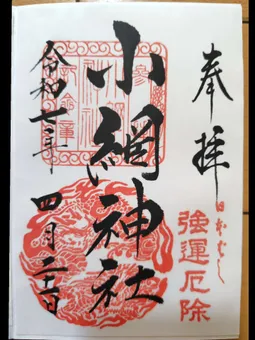 奉拝
日本ばし
強運厄除
小網神社
令和七年
四月二十二日